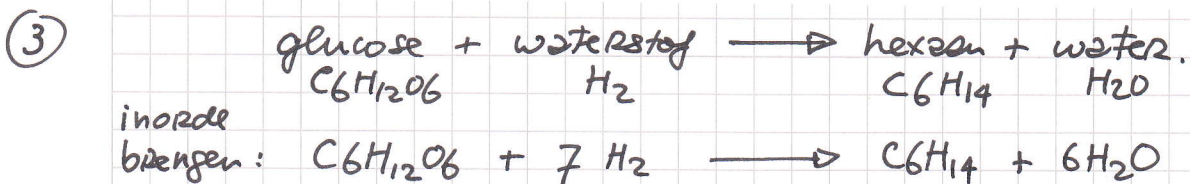 ③ glucose + waterstof → hexaan + water.
C6H12O6 H2 C6H14 H2O
in orde
brengen: C6H12O6 + 7 H2 → C6H14 + 6H2O